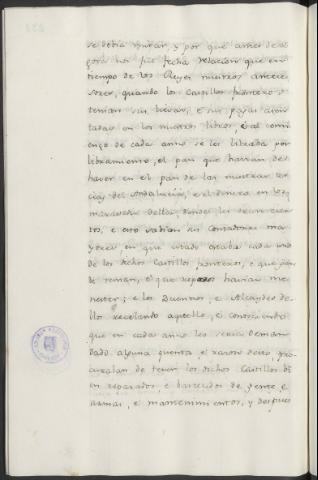 se debia mirar, y por que antes de a
gora nos fue fecha relacion que en
tiempo de los Reyes nuestros antece
sores, quando los Castillos fronteros se
tenian sus llevas, e sus pagas asen
tadas en los nuestros libros, e al comi
enzo de cada año se les librada por
libramiento, el pan que havian de
haver en el pan de las nuestras ter
cias del Andalucia, e el dinero en los
maravedis della, donde les fuere cier
tos, e esto sabian sus Contadores ma
yores en que estado estaba cada uno
de los dichos Castillos fronteros, e que gente
tenian, e que reparos havian me
nester; e los Duennos, e Alcaydes de
llos recelando aquello, e conosciendo
que en cada anno les seria deman
dado alguna quenta, e razon dello pro
curaban de tener los dichos Castillos bi
en reparados, e bastecidos de gente, e
armas, e mantenimientos, y despues